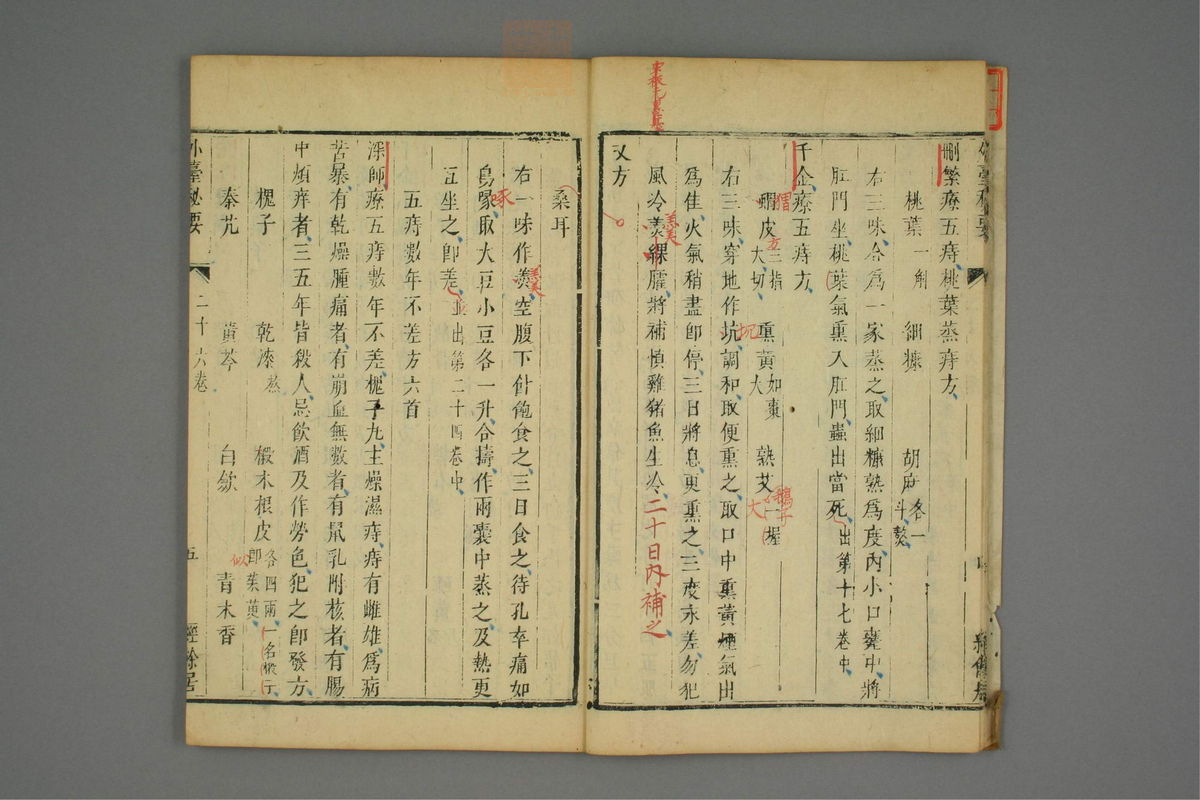 刪繁療五痔桃葉蒸痔方
桃葉一斛 細糠 胡麻各一斗熬
右三味合為一家蒸之取細糠熟為度內小口甕中將
肛門坐桃葉氣熏入肛門蟲出當死出第十七卷中
千金療五痔方
猬皮方三指大切 熏黃如棗大 熟艾一握
右三味穿地作坑調和取便熏之取口中熏黃煙氣出
為佳火氣稍盡即停三日將息更熏之三度永差勿犯
風冷羹臛將補慎雞猪魚生冷二十日內補之
又方
桑耳
右一味作羹空腹下飽食之三日食之待孔卒痛如
鳥啄取大豆小豆各一升合擣作兩囊中蒸之及熱更
互坐之即差並出第二十四卷中
五痔數年不差方六首
深師療五痔數年不差槐子丸主燥濕痔痔有雌雄為病
苦暴有乾燥腫痛者有崩血無數者有鼠乳附核者有腸
中煩痒者三五年皆殺人忌飲酒及作勞色犯之即發方
槐子 乾漆熬 椴木根皮各四兩一名樧子即茱萸
秦艽 黃芩 白蘞 青木香
外臺秘要 二十六卷 五 經餘居